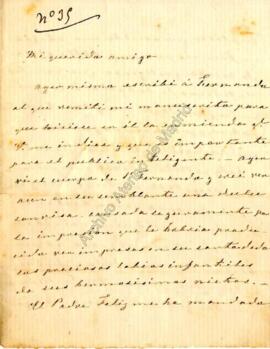 nº 35
Mi querido amigo
Ayer mismo escribí á Fernando
al que remití mi manuscrito para
que hiciese en él la enmienda qe
V. me indica y que es importante
para el publico inteligente. - Ayer
ví el cuerpo de Sn Fernando y creí ver
aun en su semblante una dulce
sonrisa causada seguramente por
la impresion que le habia produ
cido ver impresos en su
los preciosos labios infantiles
de sus hermosisimas nietas.
El Padre Felix me ha mandado
Archivo Ateneo de Madrid